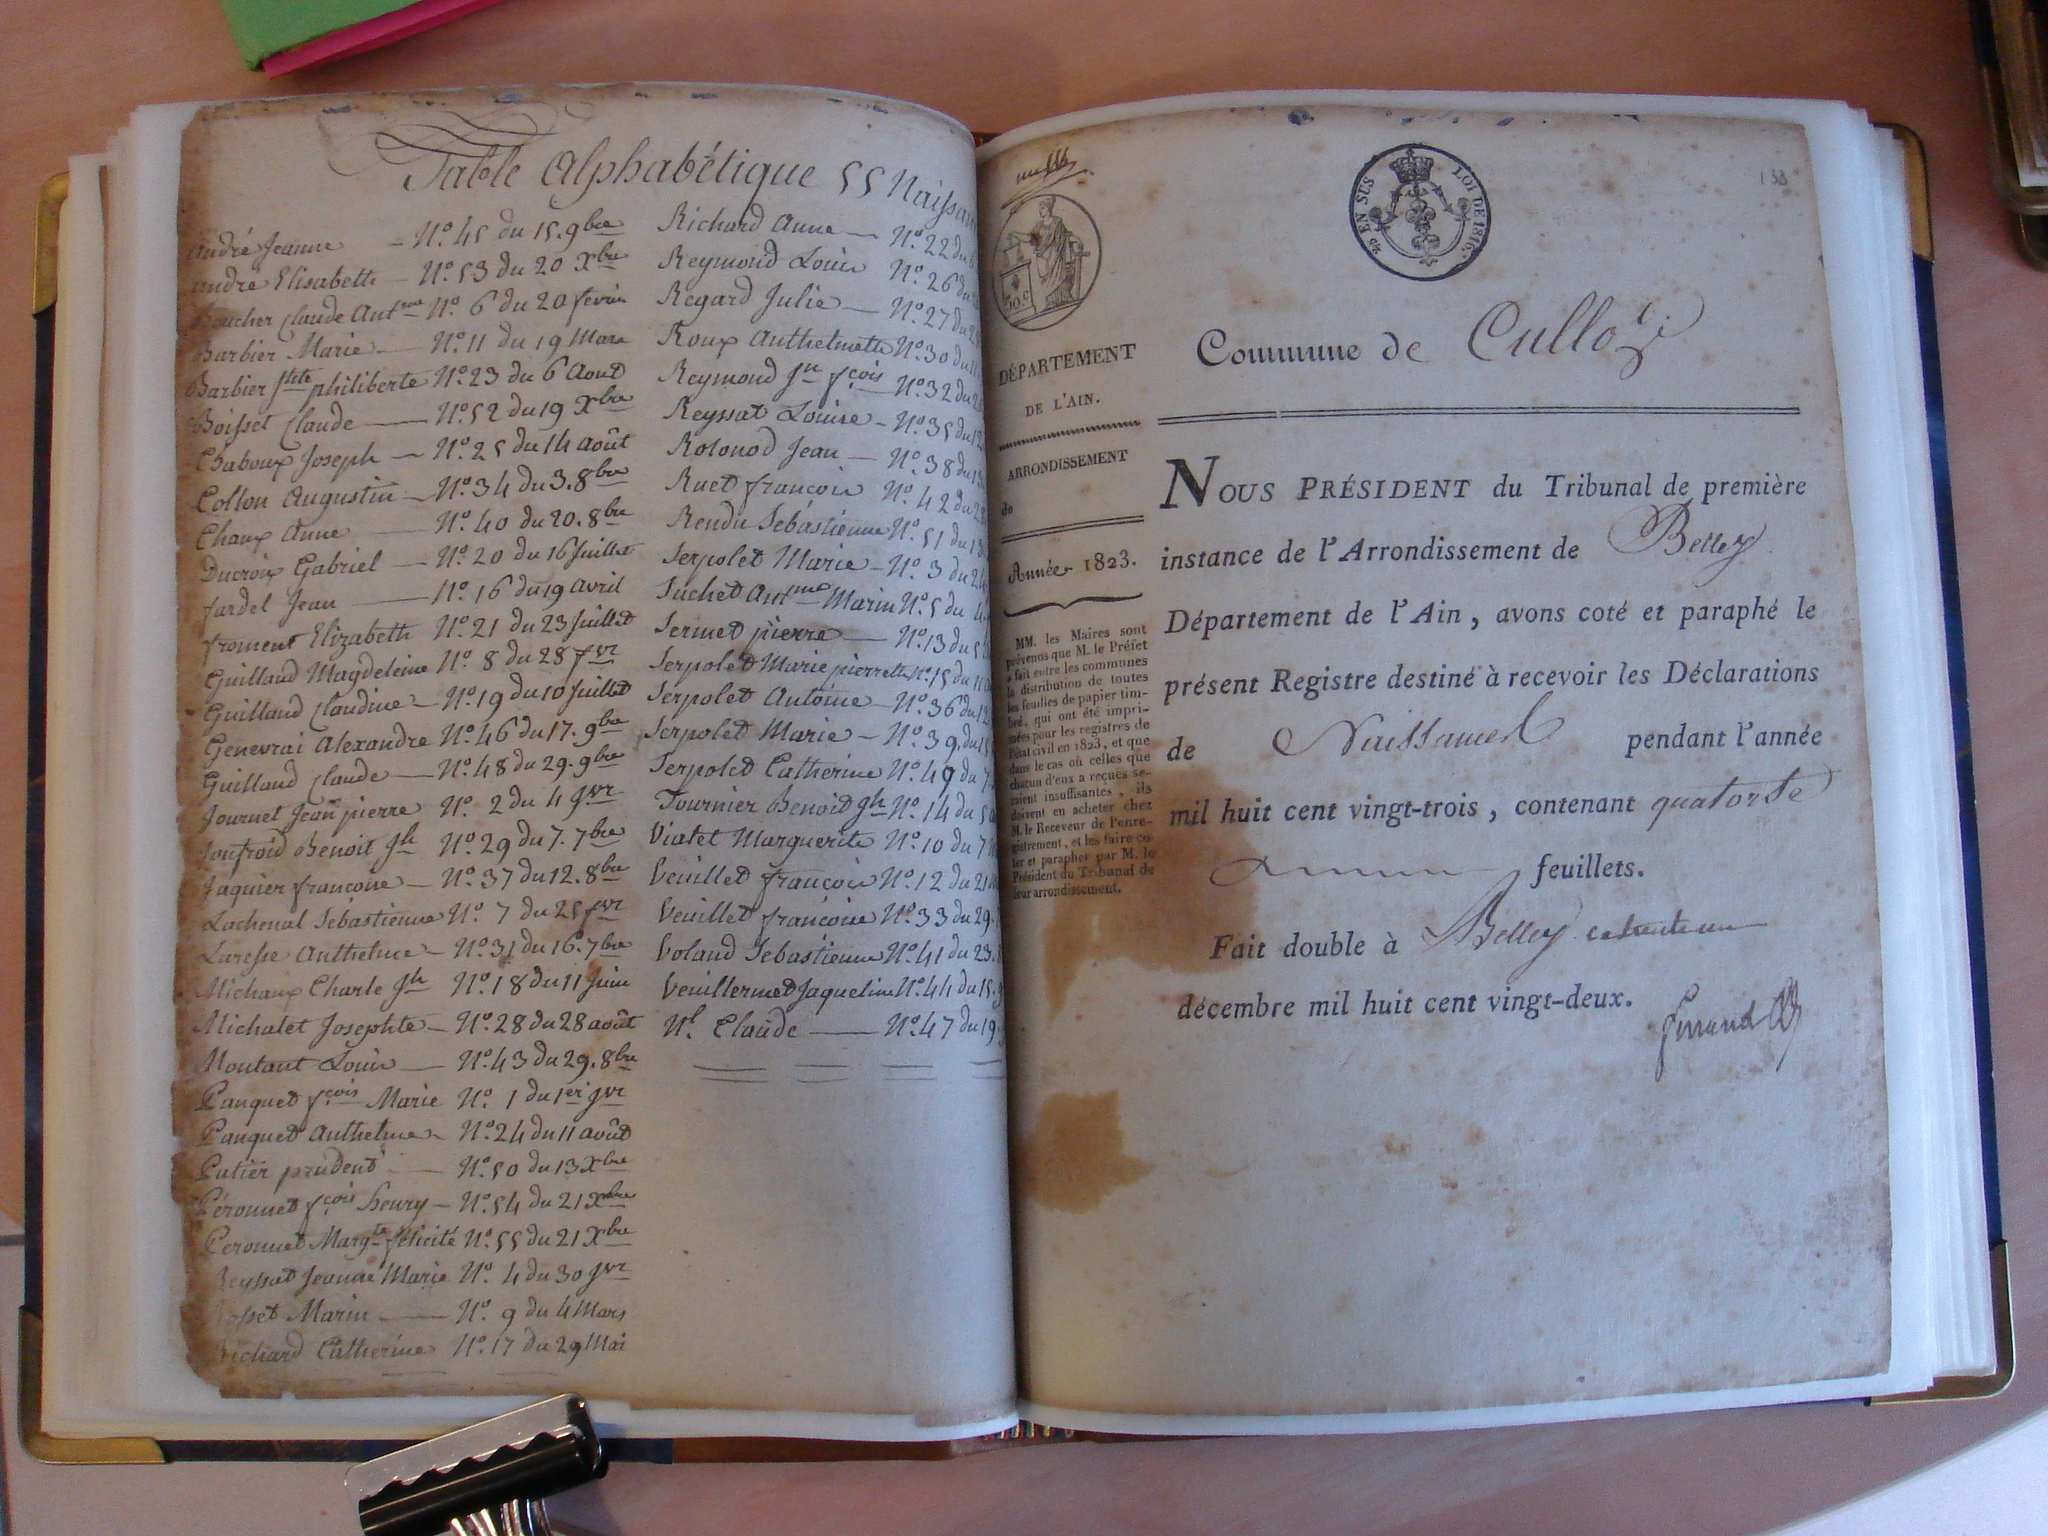 Table Alphabétique 55 Naissan
André Jeanne - N.º 45 du 15. 9bre
andré Elisabeth - N.º 53 du 20 Xbre
Boucher Claude Antme N.º 6 du 20 fevrier
Barbier Marie - N.º 11 du 19 Mars
Barbier Jhte philiberte N.º 23 du 6 Aout
Boisset Claude - N.º 52 du 19 Xbre
Chaboux Joseph - N.º 25 du 14 août
Collon Augustin - N.º 34 du 3. 8bre
Chaux Anne - N.º 40 du 20. 8bre
Ducroix Gabriel - N.º 20 du 16 Juillet
fardel Jean - N.º 16 du 19 avril
froment Elizabeth N.º 21 du 23 Juillet
Guilland Magdeleine N.º 8 du 28 fvr
Guilland Claudine - N.º 19 du 10 Juillet
Genevrai Alexandre N.º 46 du 17. 9bre
Guilland Claude - N.º 48 du 29. 9bre
Journet Jean pierre N.º 2 du 4 Jvr
Joufroid Benoit Jh N.º 29 du 7. 7bre
Jaquier francoise - N.º 37 du 12. 8bre
Lachenal Sébastienne N.º 7 du 25 fvr
Laresse Anthelme - N.º 31 du 16. 7bre
Michaux Charle Jh N.º 18 du 11 Juin
Michalet Josephte - N.º 28 du 28 août
Montant Louis - N.º 43 du 29. 8bre
Panquet fçois Marie N.º 1 du 1er Jvr
Panquet Anthelme - N.º 24 du 11 août
Putier prudent - N.º 50 du 13 Xbre
Péronnet fçois henry - N.º 54 du 21 Xbre
Peronnet Margte félicité N.º 55 du 21 Xbre
Reyssat Jeanne Marie N.º 4 du 30 Jvr
Rosset Marin - N.º 9 du 4 Mars
Richard Catherine N.º 17 du 29 Mai
Richard Anne - N.º 22 du
Reymond Louis N.º 26 du
Regard Julie - N.º 27 du
Roux Anthelmette N.º 30 du
Reymond Jn fçois N.º 32 du
Reyssat Louise - N.º 35 du 12
Rolonod Jean - N.º 38 du
Ruet francois N.º 42 du
Rendu Sebástienne N.º 51 du
Serpolet Marie - N.º 3 du
Suchet Antme Marin N.º 5 du
Sermet pierre - N.º 13 du
Serpolet Marie pierrette N.º 15 du
Serpolet Antoine - N.º 36 du 12
Serpolet Marie - N.º 39. du
Serpolet Catherine N.º 49 du
Tournier Benoit Jh N.º 14 du
Viatet Marguerite N.º 10 du 7
Veuillet francois N.º 12 du 21
Veuillet francoise N.º 33 du 29.
Voland Sebastienne N.º 41 du 23.
Veuillermet Jaqueline N.º 44 du 15.
Nl Claude - N.º 47 du 19
138
20 EN SUS LOI DE 1816.
DÉPARTEMENT
DE L'AIN.
ARRONDISSEMENT
de
Année 1823.
MM. les Maires sont
prévenus que M. le Préfet
a fait entre les communes
la distribution de toutes
les feuilles de papier tim-
bré, qui ont été impri-
mées pour les registres de
l'état civil en 1823, et que
dans le cas où celles que
chacun d'eux a reçues se-
raient insuffisantes, ils
doivent en acheter chez
M. le Receveur de l'enre-
gistrement, et les faire co-
ter et parapher par M. le
Président du Tribunal de
leur arrondissement.
Commune de Culloz
NOUS PRÉSIDENT du Tribunal de première
instance de l'Arrondissement de Belley
Département de l'Ain, avons coté et paraphé le
présent Registre destiné à recevoir les Déclarations
de Naissances pendant l'année
mil huit cent vingt-trois, contenant quatorze
feuillets.
Fait double à Belley
décembre mil huit cent vingt-deux.